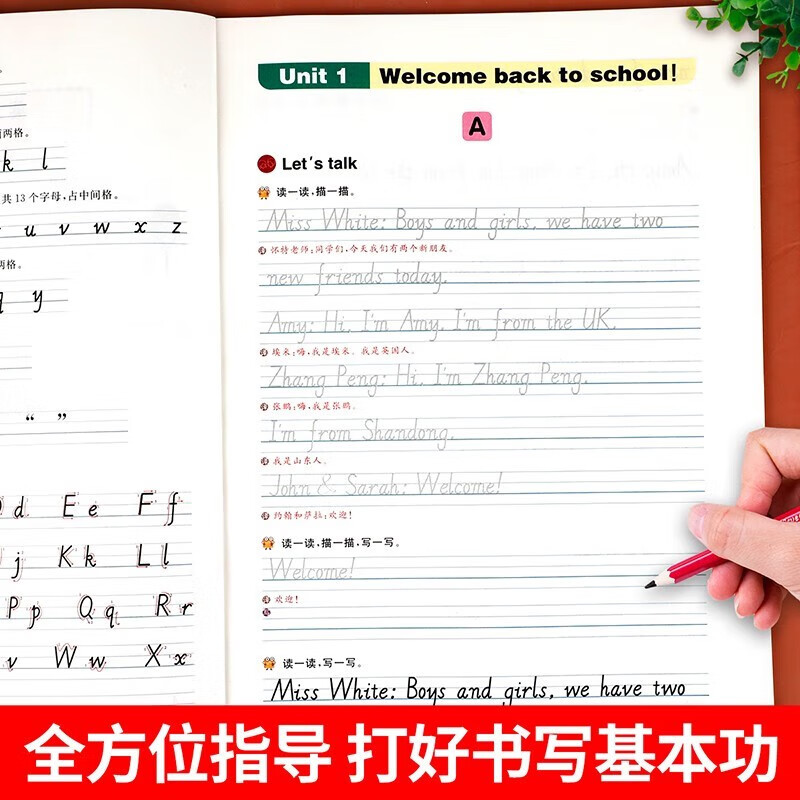 画两格。
k l
共 13 个字母,占中间格。
u v w x z
两格。
q y
“ ”
D d E e F f
j K k L l
P p Q q R r
v W w X x
Unit 1 Welcome back to school!
A
Let's talk
读一读,描一描。
Miss White: Boys and girls, we have two
译 怀特老师:同学们,今天我们有两个新朋友。
new friends today.
Amy: Hi, I'm Amy. I'm from the UK.
译 埃米:嗨,我是埃米。我是英国人。
Zhang Peng: Hi, I'm Zhang Peng.
译 张鹏:嗨,我是张鹏。
I'm from Shandong.
译 我是山东人。
John & Sarah: Welcome!
译 约翰和萨拉:欢迎!
读一读,描一描,写一写。
Welcome!
译 欢迎!
写
读一读,写一写。
Miss White: Boys and girls, we have two
全方位指导 打好书写基本功